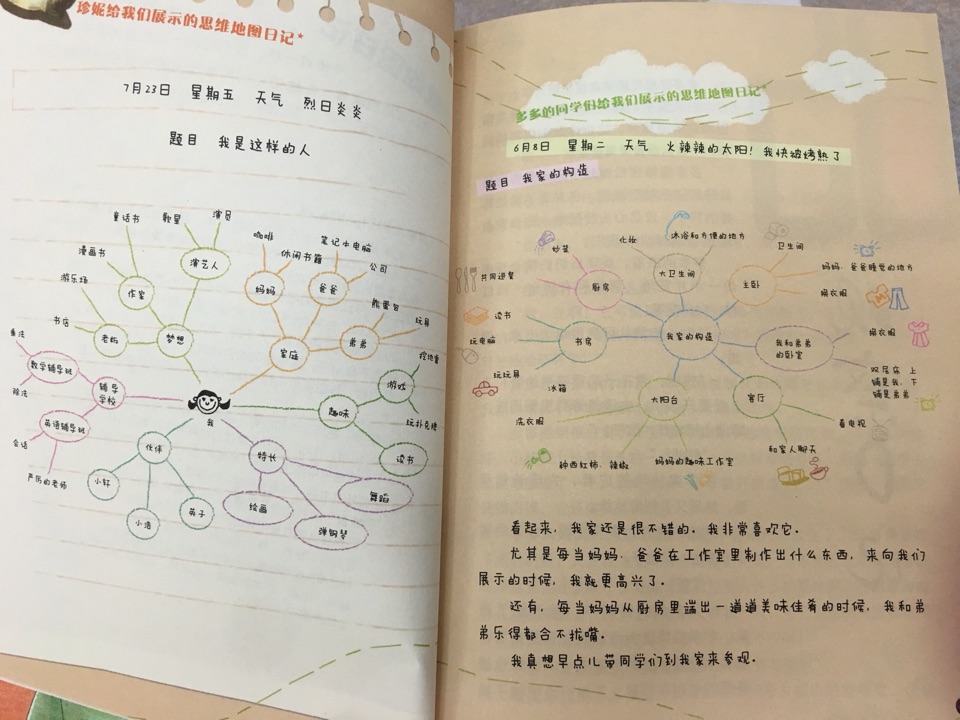 珍妮给我们展示的思维地图日记*
7月23日 星期五 天气 烈日炎炎
题目 我是这样的人
童话书
歌星
演员
漫画书
演艺人
游乐场
作家
书店
老板
梦想
咖啡
休闲书籍
笔记本电脑
公司
妈妈
爸爸
熊爱包
玩具
家庭
弟弟
乘法
数学辅导班
除法
辅导
学校
英语辅导班
会话
严厉的老师
我
趣味
游戏
挖地雷
玩扑克牌
读书
伙伴
小轩
小浩
英子
特长
绘画
弹钢琴
舞蹈
多多的同学们给我们展示的思维地图日记*
6月8日 星期二 天气 火辣辣的太阳!我快被烤熟了
题目 我家的构造
炒菜
化妆
沐浴和方便的地方
卫生间
共同进餐
厨房
大卫生间
主卧
妈妈、爸爸睡觉的地方
换衣服
读书
玩电脑
书房
我家的构造
我和弟弟
的卧室
换衣服
玩玩具
双层床 上
铺是我,下
铺是弟弟
冰箱
大阳台
客厅
洗衣服
看电视
种西红柿、辣椒
妈妈的趣味工作室
和家人聊天
看起来,我家还是很不错的。我非常喜欢它。
尤其是每当妈妈、爸爸在工作室里制作出什么东西,来向我们
展示的时候,我就更高兴了。
还有,每当妈妈从厨房里端出一道道美味佳肴的时候,我和弟
弟乐得都合不拢嘴。
我真想早点儿带同学们到我家来参观。